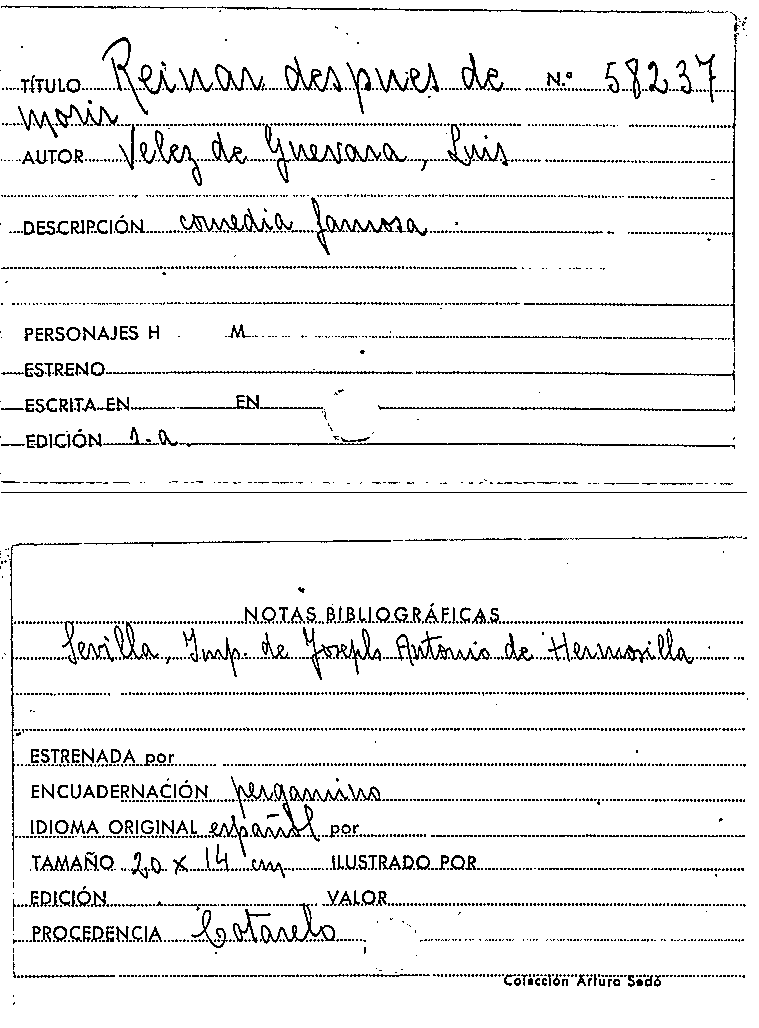 TÍTULO Reinar despues de N.º 58237
morir
AUTOR Velez de Guevara, Luis
DESCRIPCIÓN comedia famosa
PERSONAJES H M
ESTRENO
ESCRITA EN EN
EDICIÓN s.a.
NOTAS BIBLIOGRÁFICAS
Sevilla, Imp. de Joseph Antonio de Hermosilla
ESTRENADA por
ENCUADERNACIÓN pergamino
IDIOMA ORIGINAL español por
TAMAÑO 20 x 14 cm ILUSTRADO POR
EDICIÓN VALOR
PROCEDENCIA Cotarelo
Colección Arturo Sedó